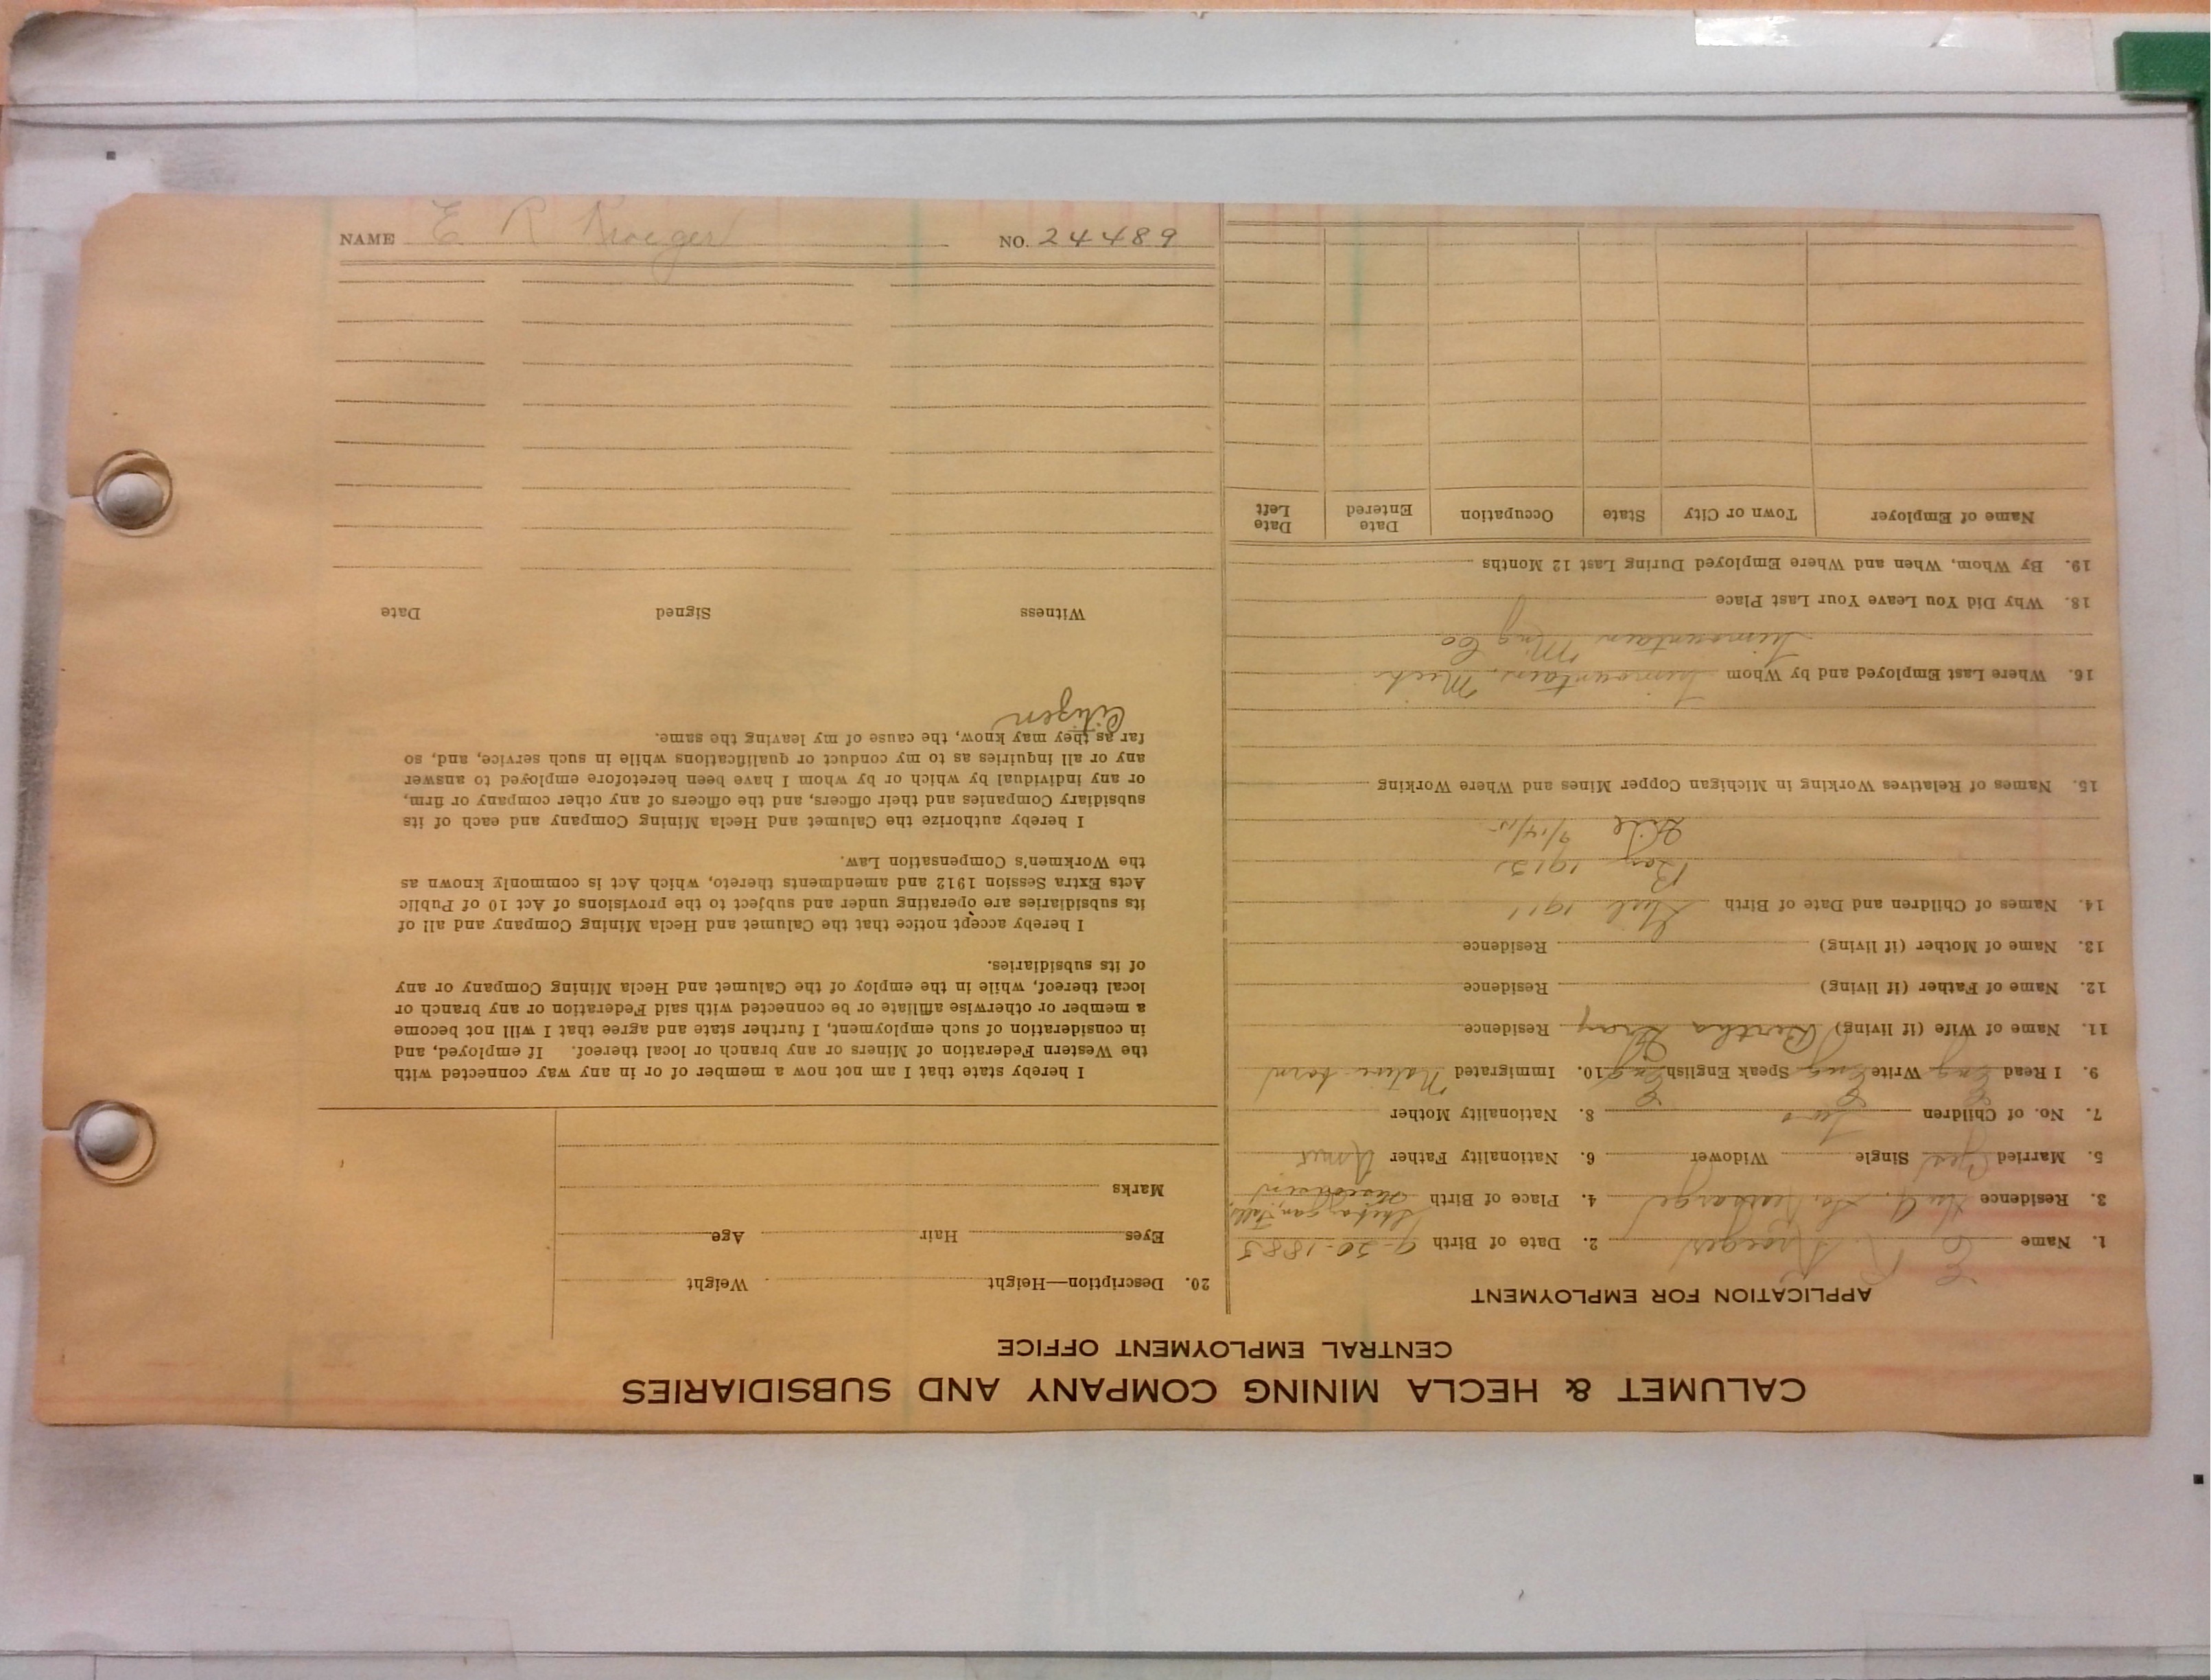 CALUMET & HECLA MINING COMPANY AND SUBSIDIARIES
CENTRAL EMPLOYMENT OFFICE
APPLICATION FOR EMPLOYMENT
1. Name E R Kroeger 2. Date of Birth 9-20-1885
3. Residence So. Kearsarge 4. Place of Birth Sheboygan Falls,
Wisconsin
5. Married Yes Single Widower 6. Nationality Father Amer
7. No. of Children Two 8. Nationality Mother
9. I Read Eng Write Eng Speak English Eng 10. Immigrated Native born
11. Name of Wife (if living) Bertha Residence
12. Name of Father (if living) Residence
13. Name of Mother (if living) Residence
14. Names of Children and Date of Birth Girl 1911
Boy 1913
Girl 9/14/15
15. Names of Relatives Working in Michigan Copper Mines and Where Working
16. Where Last Employed and by Whom Trimountain, Mich
Trimountain Mng Co
18. Why Did You Leave Your Last Place
19. By Whom, When and Where Employed During Last 12 Months
Name of Employer Town or City State Occupation Date Entered Date Left
20. Description—Height Weight
Eyes Hair Age
Marks
I hereby state that I am not now a member of or in any way connected with
the Western Federation of Miners or any branch or local thereof. If employed, and
in consideration of such employment, I further state and agree that I will not become
a member or otherwise affiliate or be connected with said Federation or any branch or
local thereof, while in the employ of the Calumet and Hecla Mining Company or any
of its subsidiaries.
I hereby accept notice that the Calumet and Hecla Mining Company and all of
its subsidiaries are operating under and subject to the provisions of Act 10 of Public
Acts Extra Session 1912 and amendments thereto, which Act is commonly known as
the Workmen's Compensation Law.
I hereby authorize the Calumet and Hecla Mining Company and each of its
subsidiary Companies and their officers, and the officers of any other company or firm,
or any individual by which or by whom I have been heretofore employed to answer
any or all inquiries as to my conduct or qualifications while in such service, and, so
far as they may know, the cause of my leaving the same.
Citizen
Witness Signed Date
NAME E R Kroeger NO. 24489